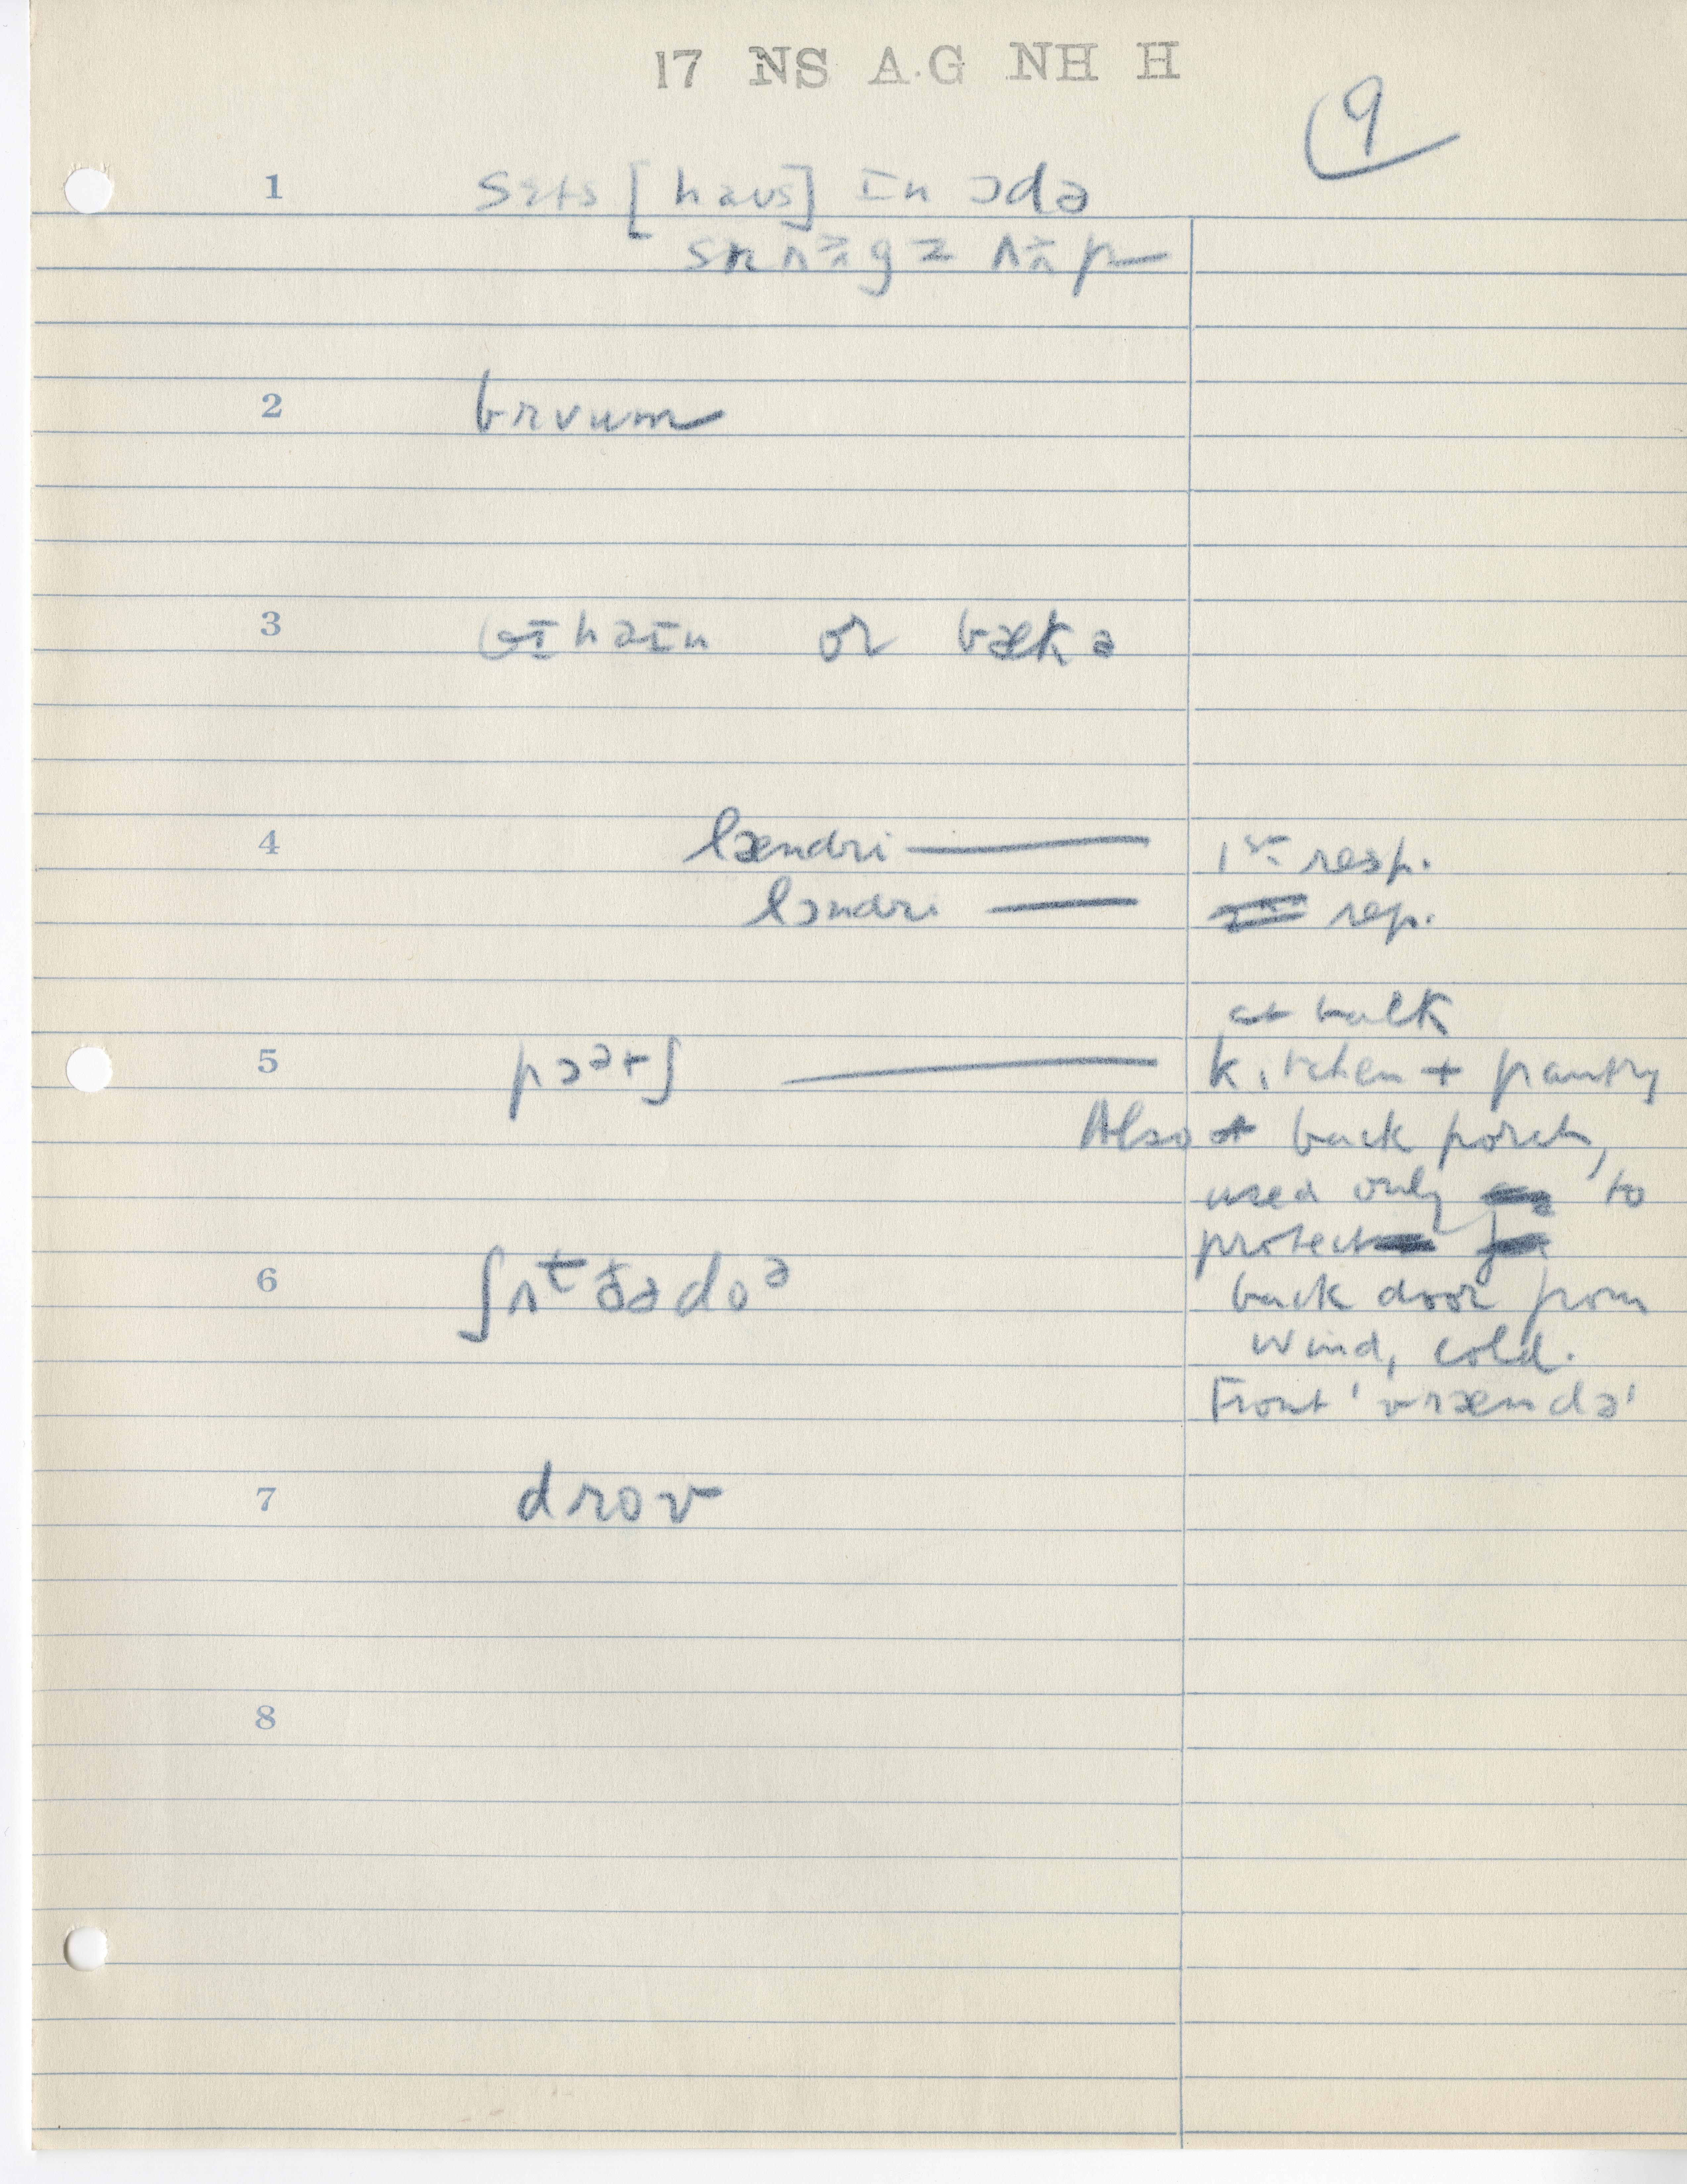 17 NS A.G NH H
9
1 sɛts [haʊs] ɪn ɔdə
2 brʊum
3 or bækə
4 lændri 1st resp.
lɔndri rep.
at balk
5 pɔətʃ kitchen + pantry
Also back porch,
used only to
protect
6 ʃʌt ðə doə back door from
wind, cold.
Front 'vrændə'
7 drov
8